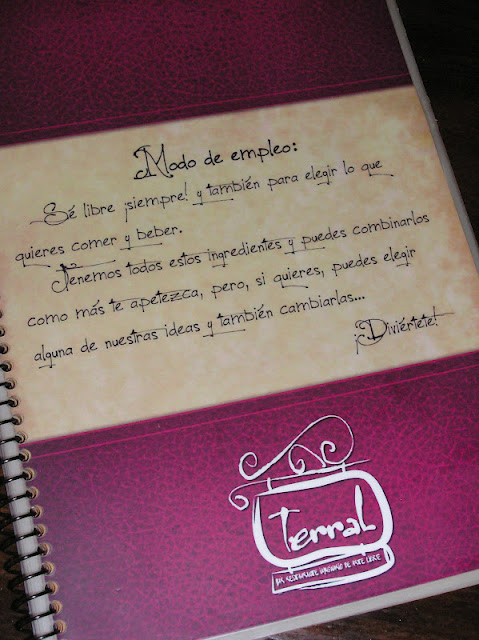 Modo de empleo:
Sé libre ¡siempre! y también para elegir lo que
quieres comer y beber.
Tenemos todos estos ingredientes y puedes combinarlos
como más te apetezca, pero, si quieres, puedes elegir
alguna de nuestras ideas y también cambiarlas...
¡Diviértete!
Terral